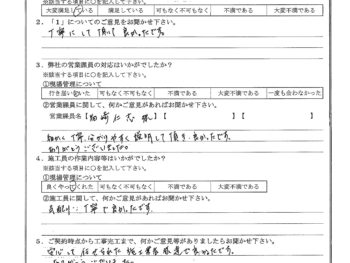 ※該当する項目に○を記入して下さい。
大変満足している 満足している 可もなく不可もなく 不満である 大変不満である
2．「1」についてのご意見をお聞かせ下さい。
丁寧にして頂いて良かったです。
3．弊社の営業課員の対応はいかがでしたか？
※該当する項目に○を記入して下さい。
①現場管理について
行き届いていた 可もなく不可もなく 不満である 大変不満である 一度も会わなかった
②営業課員に関して、何かご意見があればお聞かせ下さい。
営業課員名【 】【 】【 】
細かく丁寧、分かりやすく説明して頂き良かったです。
ありがとうございました。
4．施工員の作業内容等はいかがでしたか？
※該当する項目に○を記入して下さい。
①現場管理について
良くやってくれた 可もなく不可もなく 不満である 大変不満である
②施工員に関して、何かご意見があればお聞かせ下さい。
丁寧で良かったです。
5．ご契約時点から工事完工まで、何かご意見等がありましたらお聞かせ下さい。
安心して任せられた